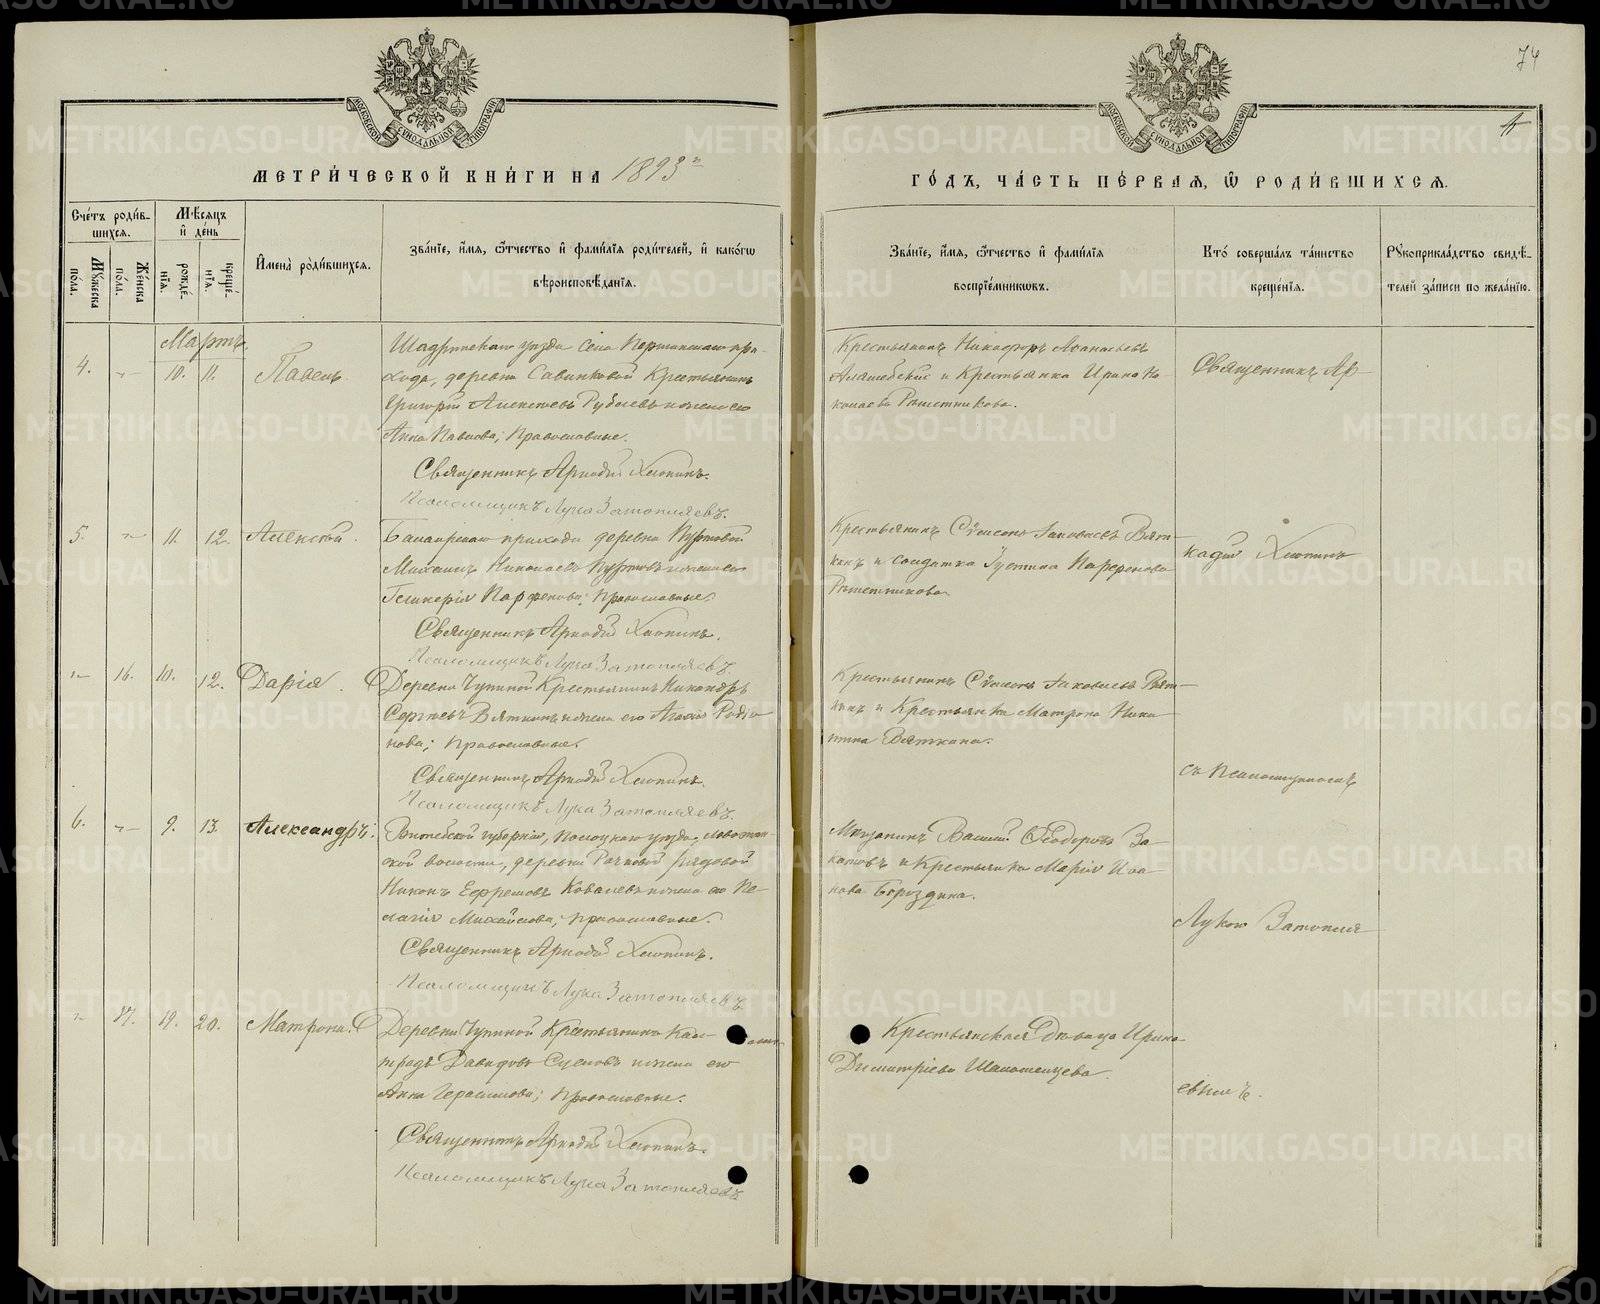 74
МЕТРИ́ЧЕСКОЙ КНИ́ГИ НА 1893 ГО́ДЪ, ЧА́СТЬ ПЕ́РВАЯ, Ѽ РОДИ́ВШИХСЯ.
МОСКОВСКОЙ СѴНОДАЛЬНОЙ ТИПОГРАФІИ
МОСКОВСКОЙ СѴНОДАЛЬНОЙ ТИПОГРАФІИ
Сче́тъ роди́в-
шихся.
Мѣ́сяцъ
и҆ де́нь
Мꙋ́жеска
по́ла.
Же́нска
по́ла.
рожде́-
нїя.
креще́-
нїя.
И҆мена̀ роди́вшихся.
Зва́нїе, и҆́мя, ѻ҆́тчество и҆ фами́лїя роди́телей, и҆ како́гѡ
вѣроисповѣ́данїя.
Зва́нїе, и҆́мя, ѻ҆́тчество и҆ фами́лїя
воспрїе́мникѡвъ.
Кто̀ соверша́лъ та́инство
креще́нїя.
Рꙋкоприкла́дство свидѣ́-
телей за́писи по жела́нїю.
Мартъ
4. 10. 11. Павелъ
Шадринскаго уѣзда села Першинскаго при-
хода, деревни Савинковой Крестьянинъ
Григорій Алексѣевъ и жена его
Анна Павлова; Православные.
Священникъ Аркадій Хлопинъ.
Псаломщикъ Лука Затопляевъ.
Крестьянинъ Никифоръ Аѳанасьевъ
и Крестьянка Ирина Ни-
колаева Рѣшетникова.
Священникъ Ар-
5. 11. 12. Алексѣй.
прихода деревни
Михаилъ Николаевъ и жена его
Гликерія Парфенова; Православные.
Священникъ Аркадій Хлопинъ.
Псаломщикъ Лука Затопляевъ.
Крестьянинъ Сѷмеонъ Іаковлевъ Вят-
кинъ и солдатка Іустина Парфенова
Рѣшетникова
кадій Хлопинъ
16. 10. 12. Дарія.
Деревни Чупиной Крестьянинъ Никандръ
Сергѣевъ Вяткинъ и жена его Агаѳія Родіо-
нова; Православные.
Священникъ Аркадій Хлопинъ.
Псаломщикъ Лука Затопляевъ.
Крестьянинъ Сѷмеонъ Іаковлевъ Вят-
кинъ и Крестьянка Матрона Ники-
тина Вяткина.
съ Псаломщикомъ
6. 9. 13. Александръ.
Витебской губерніи, Полоцкаго уѣзда,
волости, деревни рядовой
Никонъ Ефремовъ Ковалевъ и жена его Пе-
лагія Михайлова; Православные.
Священникъ Аркадій Хлопинъ.
Псаломщикъ Лука Затопляевъ
Мѣщанинъ Василій Ѳеодоровъ За-
и Крестьянка Марія Ива-
нова Бороздина.
Лукою Затопля-
17. 19. 20. Матрона.
Деревни Чупиной Крестьянинъ
Давидовъ и жена его
Анна Герасимова; Православные.
Священникъ Аркадій Хлопинъ.
Псаломщикъ Лука Затопляевъ
Крестьянская дѣвица Ирина
Димитріева Шаламенцева.
евымъ.